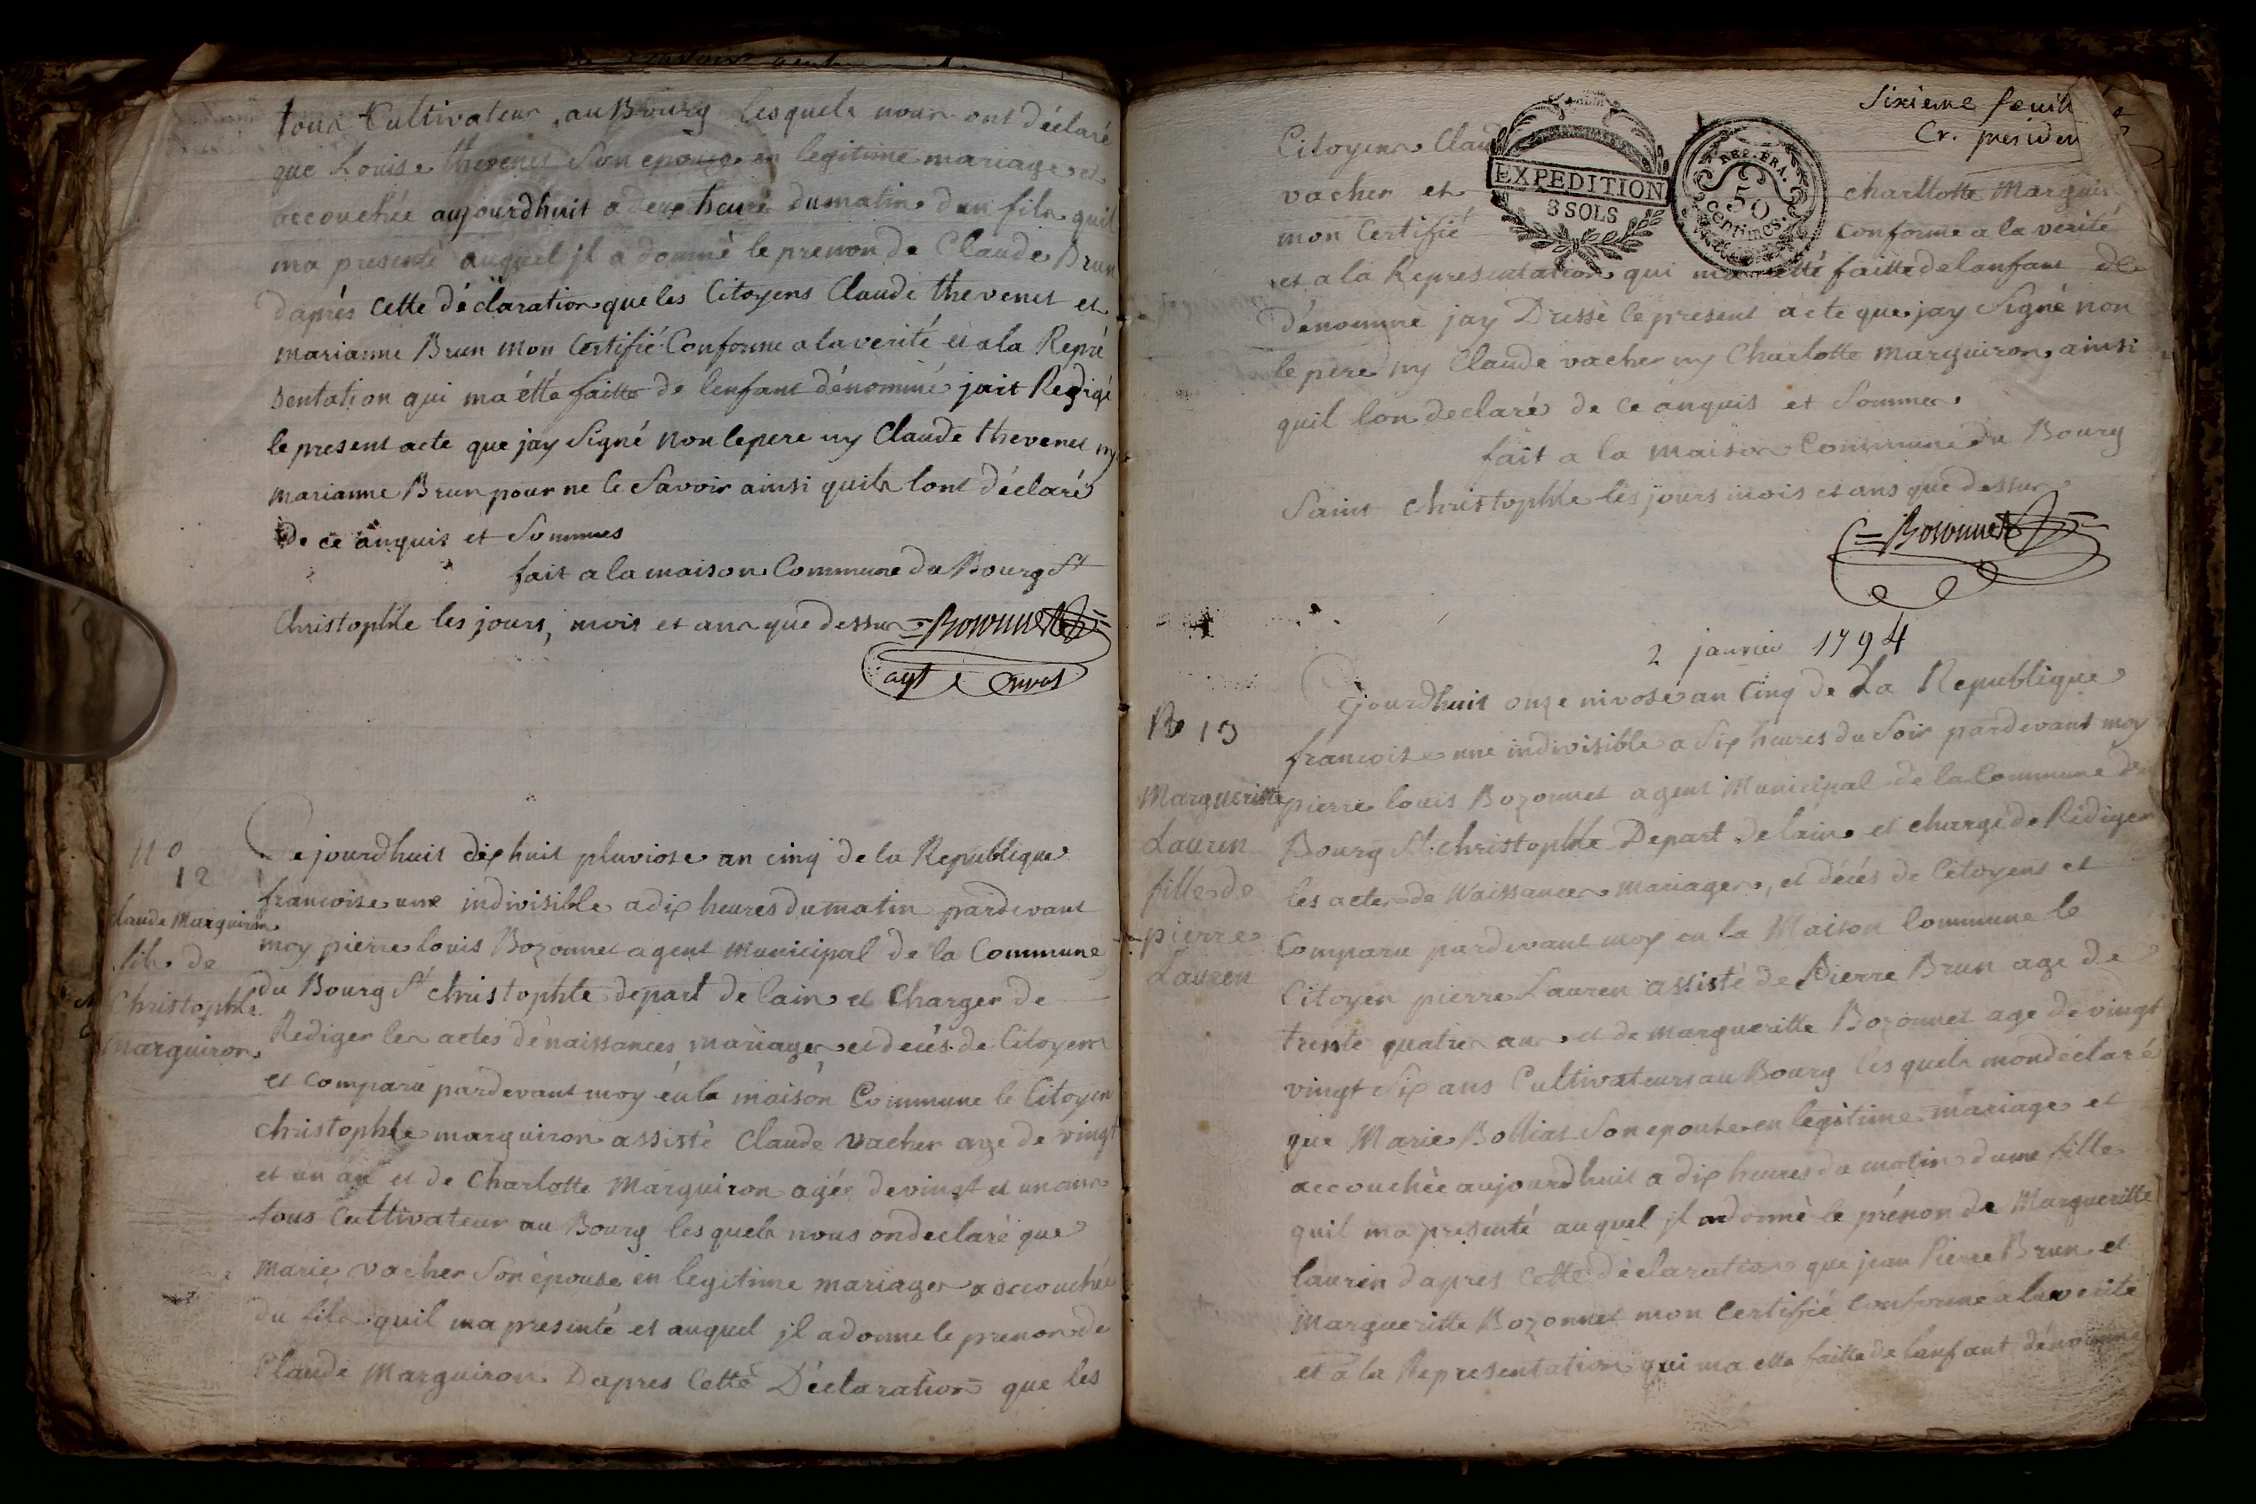 tous Cultivateur, au Bourg lesquels nous ont déclaré
que Louise thevenet Son epouse en legitime mariage et
accouchée aujourdhuit a deux heure dumatin dun fils quil
ma presenté auquel jl a donné le prenon de Claude Brun
daprés cette déclaration que les Citoyens Claude thevenet et
marianne Brun mon Certifié Conforme a la verité et a la Repré
sentation qui ma étté faitte de lenfant dénommé jait Redigé
le present acte que jay Signé non lepere ny Claude thevenet ny
marianne Brun pour ne le Savoir ainsi quils lont déclaré
De ce anquis et Sommes
fait a la maison Commune du Bourg St
Christophle les jours, mois et ans que dessus Bozonnet
agt
No
12
Claude Marguiron
fils de
Christophle
Marguiron
Cejourdhuit dix huit pluviose an cinq de la Republique
francoise une indivisible a dix heures du matin pardevant
moy pierre louis Bozonnet agent Municipal de la Commune
du Bourg St christophle depart de lain et Charger de
Rediger les actes dénaissances mariages et decés de Citoyens
et comparu pardevant moy en la maison Commune le Citoyen
christophle marguiron assisté Claude vacher age de vingt
et un an et de Charlotte Marguiron agée de vingt et un ans
tous Cultivateur au Bourg lesquels nous ondeclaré que
Marie vacher Son épouse en legitime mariager a accouchée
du fils quil ma presenté et auquel jl adonne le prenon de
Claude Marguiron Dapres Cette Déclaration que les
Sixieme feuil
Cr. presiden
EXPEDITION
3 SOLS
REP. FRA.
50
centimes
Citoyens Clau
vacher et charllotte Marguir
mon Certifié Conforme a la verité
et a la Representation qui ma etté faitte de lanfant de
dénommé jay Dressé le present acte que jay Signé non
le pere ny Claude vacher ny Charlotte Marguiron, ainsi
quil lon declaré de ce anquis et Sommes
fait a la maison Commune du Bourg
Saint christophle les jours mois et ans que dessus
Bozonnet
2 janvier 1794
No 13
Margueritte
Lauren
fille de
pierre
Lauren
Cejourdhuit onze nivose an Cinq de La Republique
francoise une indivisible a Six heures du Soir pardevant moy
pierre louis Bozonnet agent Municipal de la Commune du
Bourg St. christophle Depart. de lain et charge de Rediger
les actes de Naissances mariages, et décés de Citoyens et
Comparu pardevant moy en la Maison Commune le
Citoyen pierre Lauren assisté de Pierre Brun age de
trente quatre ans et de margueritte Bozonnet age de vingt
vingt Six ans Cultivateurs au Bourg lesquels mondéclaré
que Marie Bolliat Son epouse en legitime mariage et
accouchée aujourdhuit a dix heures du matin dune fille
quil ma presenté auquel jl adonné le prénon de Margueritte
laurin dapres Cette déclaration que jean Pierre Brun et
Margueritte Bozonnet mon Certifié Conforme a la verité
et a la Representation qui ma etté faitte de lanfant dénommé